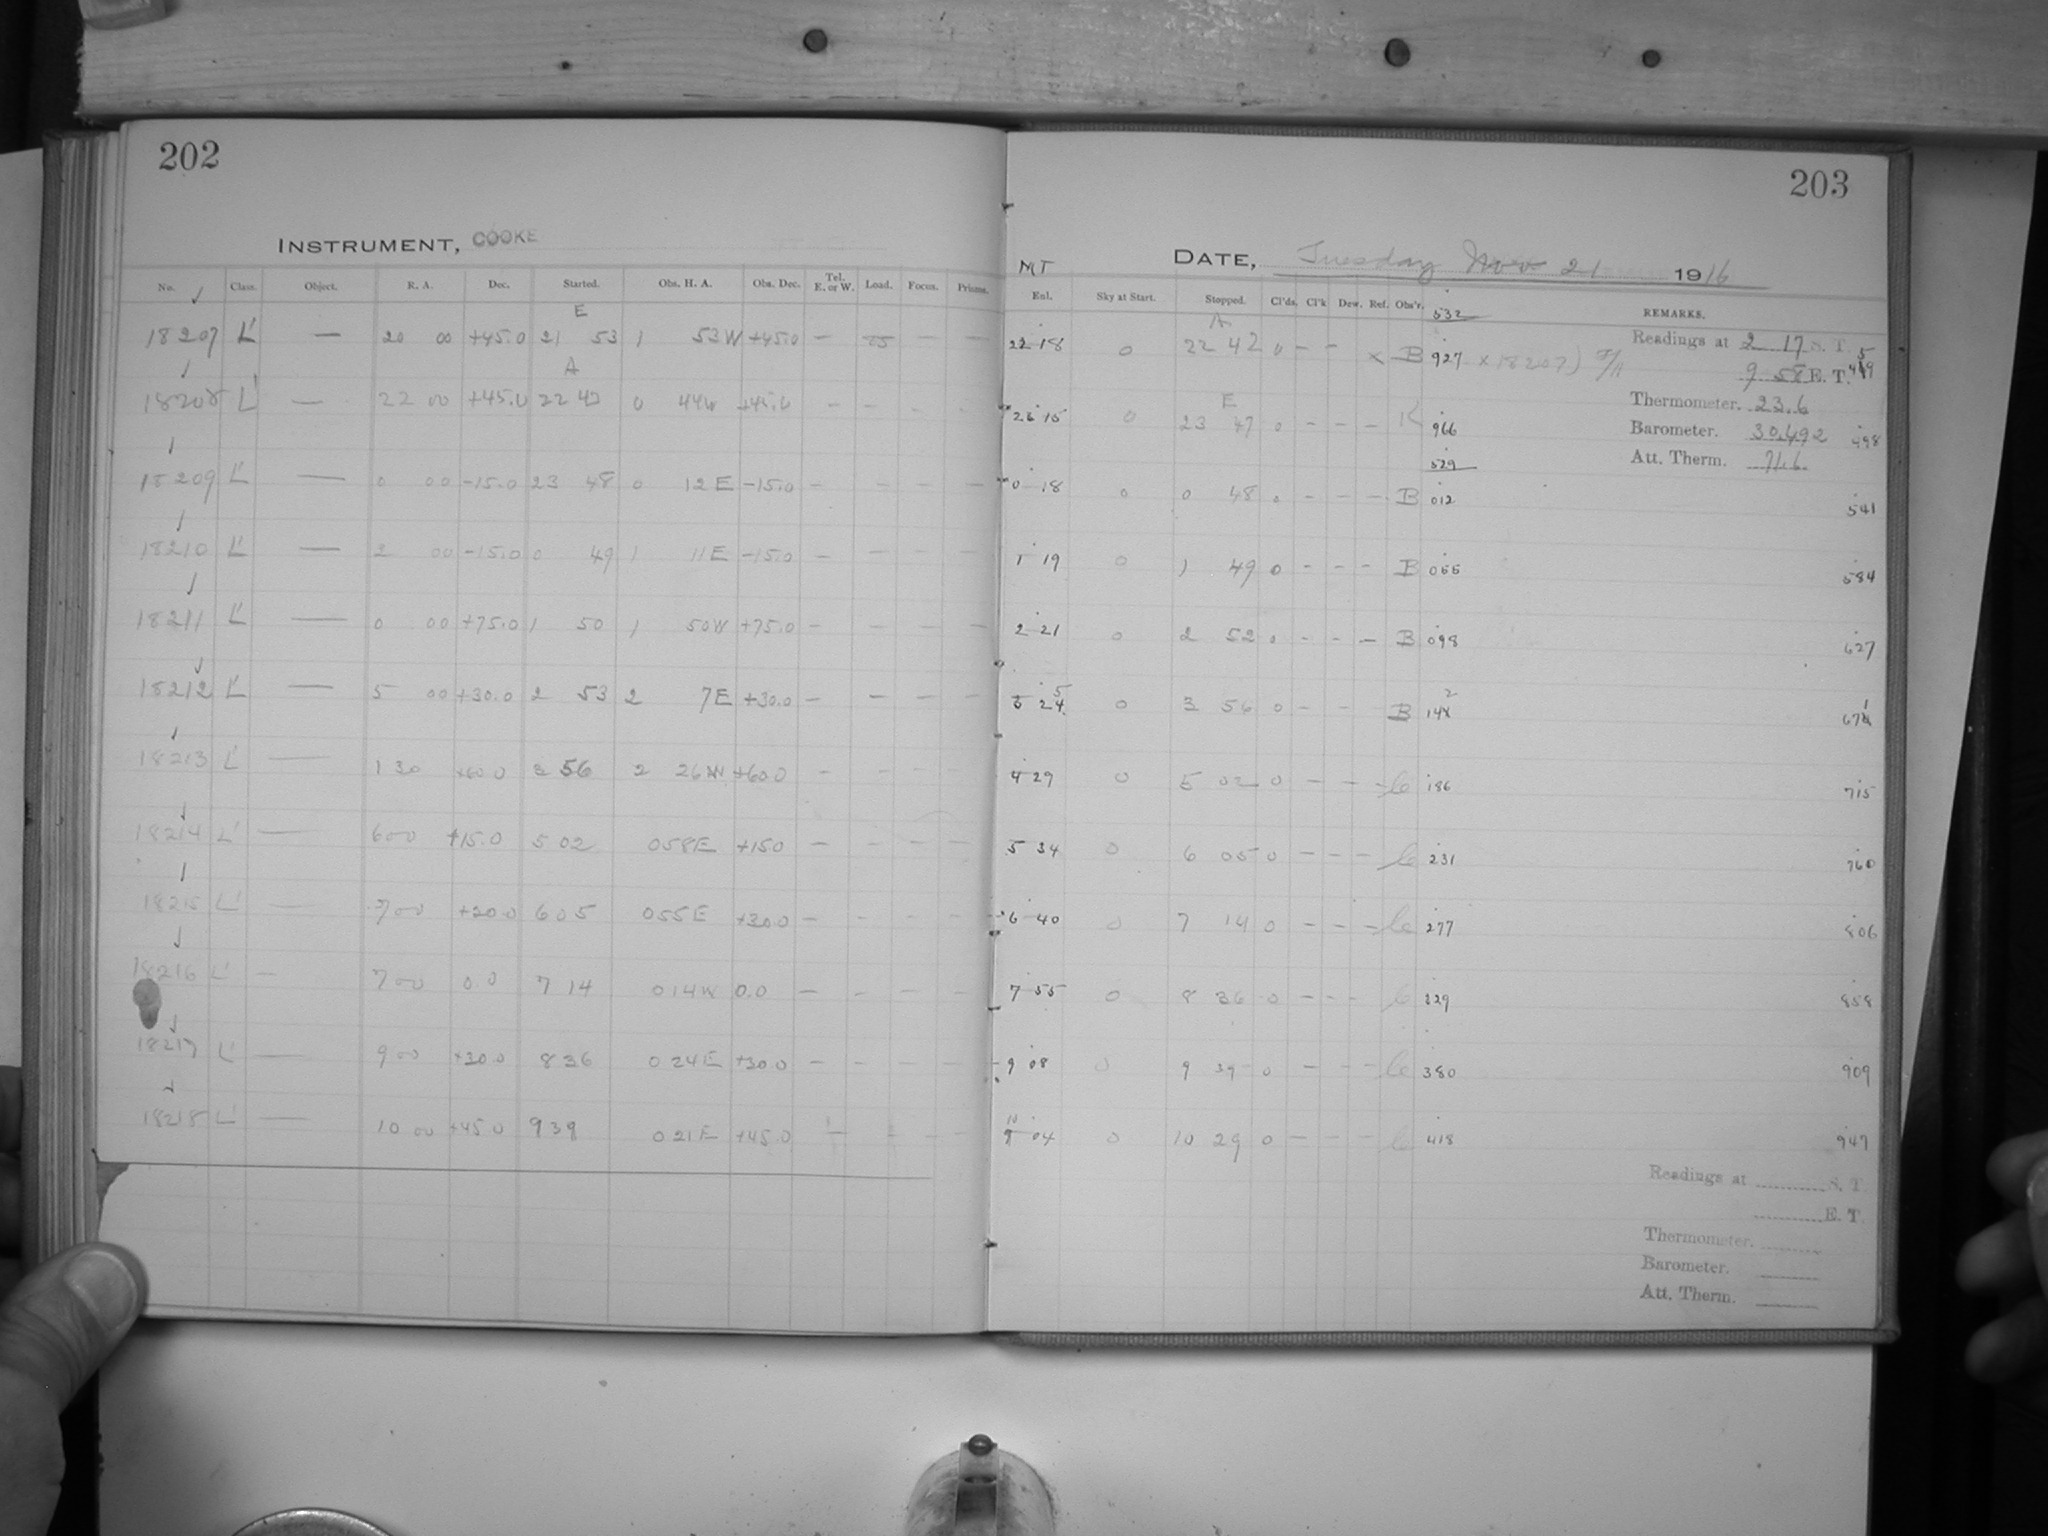 202
203
INSTRUMENT, COOKE
DATE, Tuesday Nov 21 1916
No. Class. Object. R. A. Dec. Started. Obs. H. A. Obs. Dec. Tel. E. or W. Load. Focus. Prisms.
MT
Enl. Sky at Start. Stopped. Cl'ds. Cl'k Dew. Ref. Obs'r. REMARKS.
532
E
A
18207 L' — 20 00 +45.0 21 53 1 53W +45.0 — — —
22 18 0 22 42 0 — — X B 927 X 18207)
Readings at 2 17 S. T.
9 58 E. T.
A
E
18208 L' — 22 00 +45.0 22 43 0 44W +45.0 — — — —
23 15 0 23 47 0 — — — K 966
Thermometer. 23.6
Barometer. 30.492 498
Att. Therm. 71.6
529
18209 L' — 0 00 -15.0 23 48 0 12E -15.0 — — — —
0 18 0 0 48 0 — — — B 012 541
18210 L' — 2 00 -15.0 0 49 1 11E -15.0 — — — —
1 19 0 1 49 0 — — — B 055 584
18211 L' — 0 00 +75.0 1 50 1 50W +75.0 — — — —
2 21 0 2 52 0 — — — B 098 627
18212 L' — 5 00 +30.0 2 53 2 7E +30.0 — — — —
3 24 5 0 3 56 0 — — B 142 671
18213 L' — 1 30 +60.0 3 56 2 26W +60.0 — — — —
4 29 0 5 02 0 — — — 186 715
18214 L' — 6 00 +15.0 5 02 0 58E +15.0 — — — —
5 34 0 6 05 0 — — — 231 760
18215 L' — 7 00 0 6 05 0 55E +30.0 — — — —
6 40 0 7 14 0 — — — 277 806
18216 L' — 7 00 0.0 7 14 0 14W 0.0 — — — —
7 55 0 8 36 0 — — — 329 858
18217 L' — 9 00 +30.0 8 36 0 24E +30.0 — — — —
9 08 0 9 39 0 — — — 380 909
18218 L' — 10 00 +45.0 9 39 0 21E +45.0 — — — —
10 04 0 10 29 0 — — — 418 947
Readings at S. T.
E. T.
Thermometer.
Barometer.
Att. Therm.